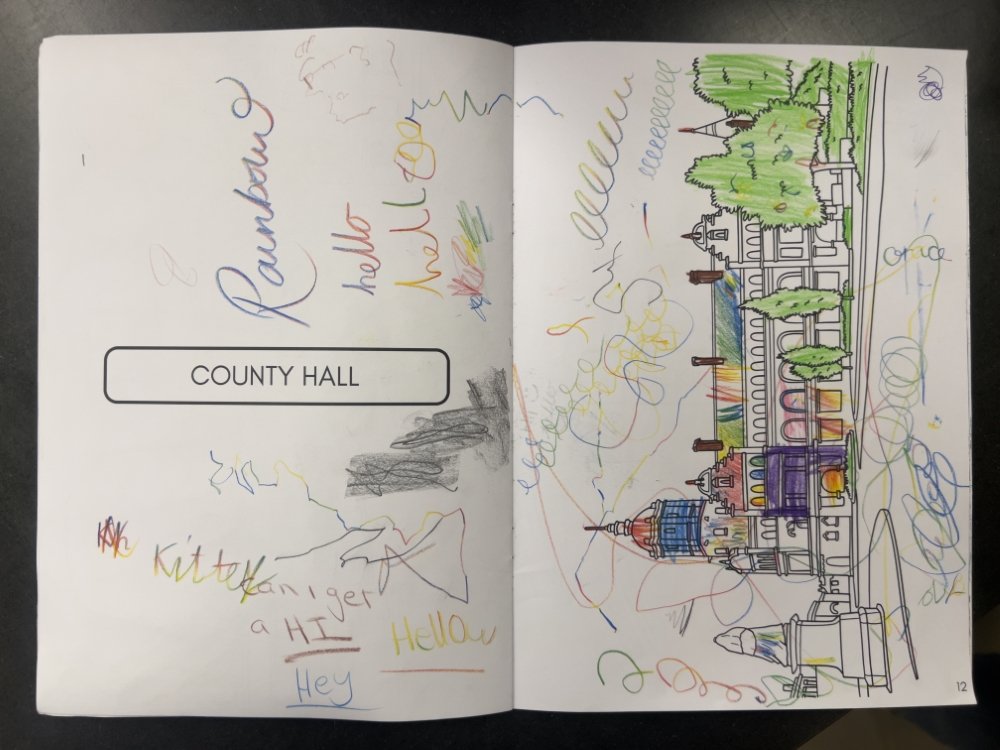 Rainbow
hello
hello
COUNTY HALL
Kitten
can i get
a HI
Hellow
Hey
grace
12